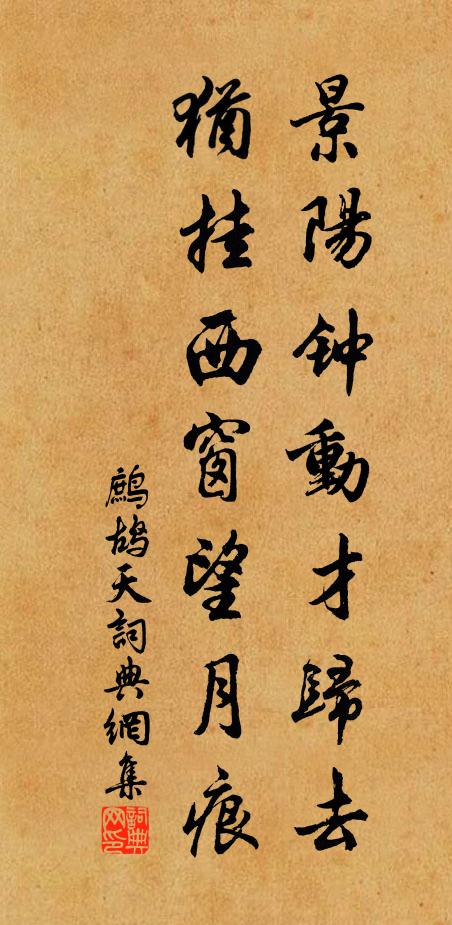 景陽钟動才歸去
猶挂西窗望月痕
鷓鴣天詞典網集
詞典网印